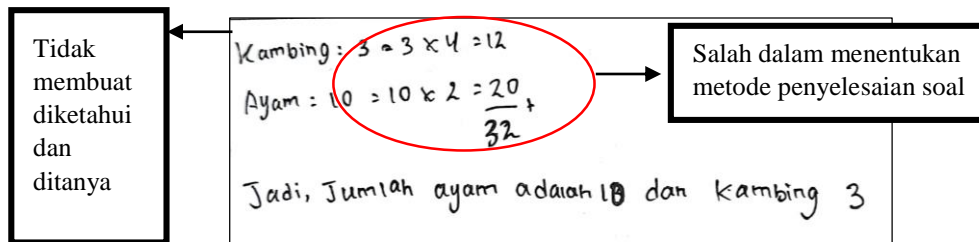 Tidak
membuat
diketahui
dan
ditanya
Kambing : 3 = 3 x 4 = 12
Ayam = 10 = 10 x 2 = 20
+
32
Jadi, Jumlah ayam adalah 10 dan kambing 3
Salah dalam menentukan
metode penyelesaian soal